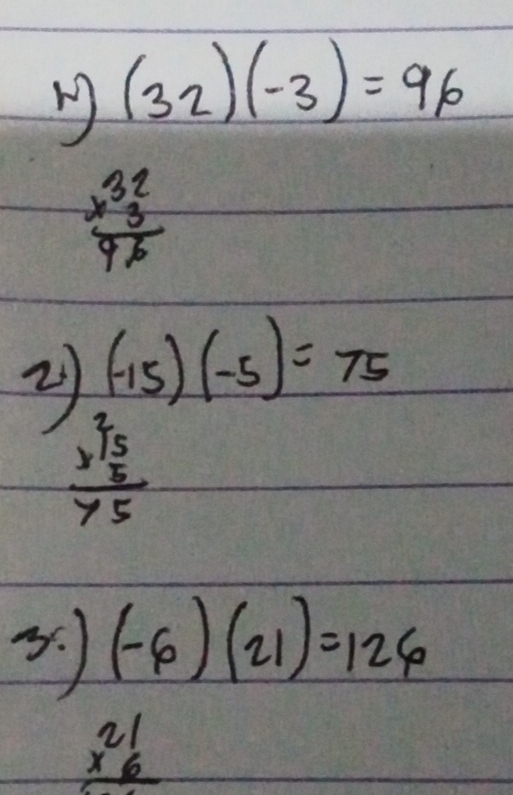 1.) (32)(-3) = 96
32
× 3
96
2.) (-15)(-5) = 75
2
15
× 5
75
3.) (-6)(21) = 126
21
× 6